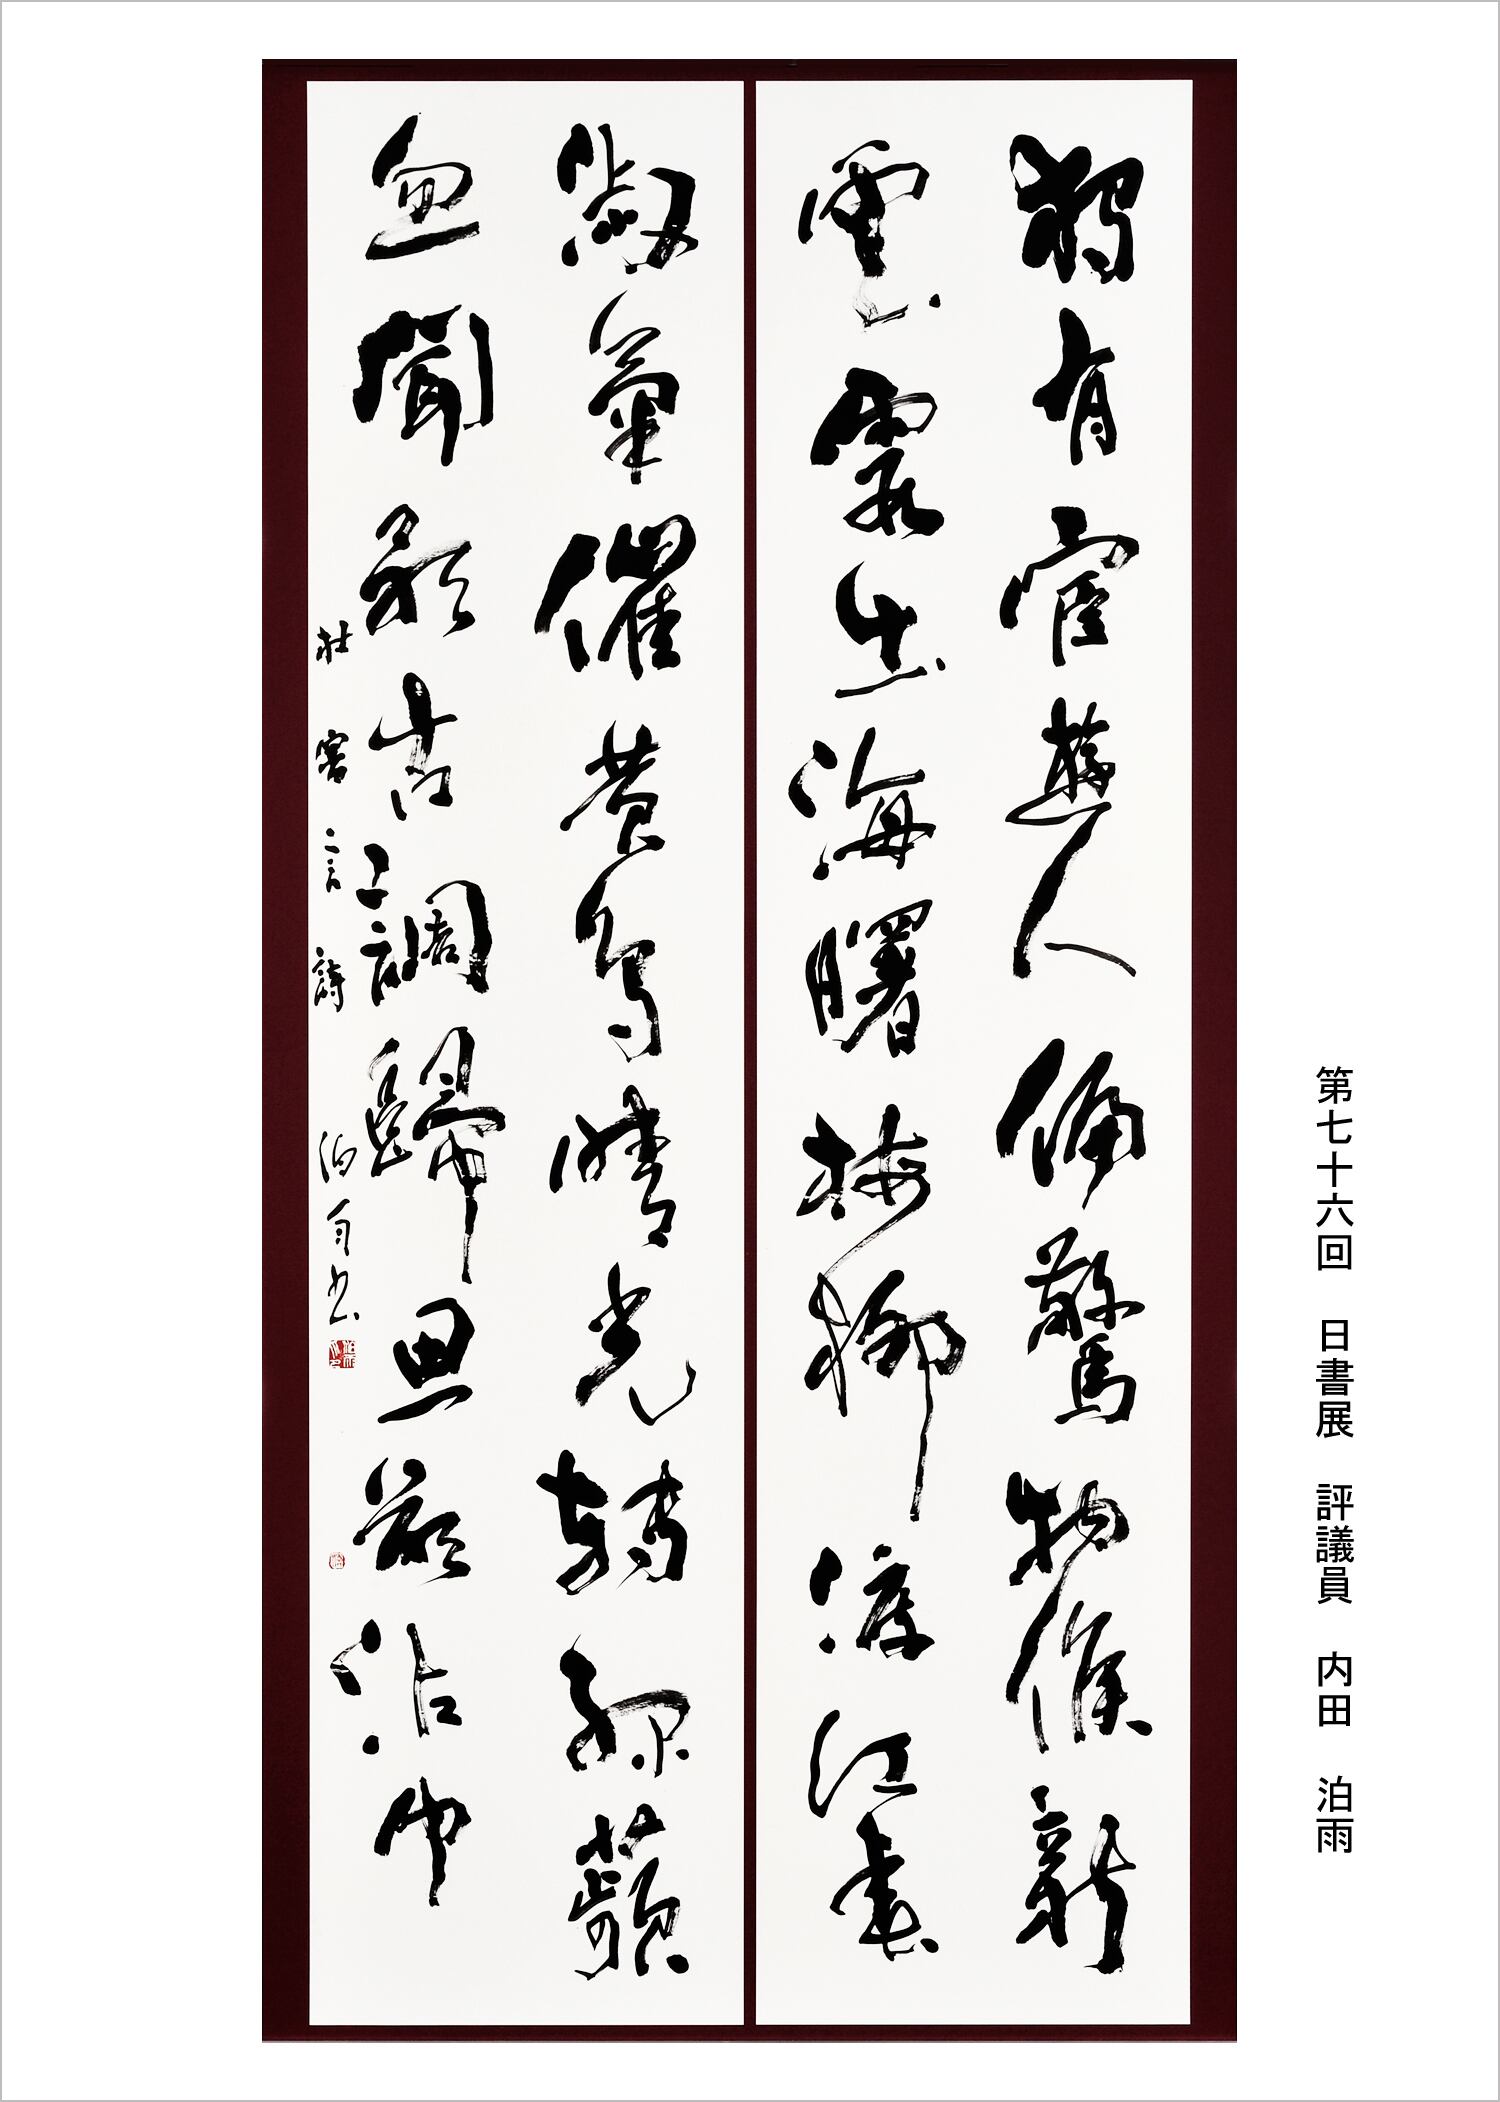 第七十六回　日書展　評議員　内田　泊雨
獨有宦遊人偏驚物候新
雲霞出海曙梅柳渡江春
淑氣催黄鳥晴光轉緑蘋
忽聞歌古調歸思欲沾巾
杜審言詩　泊雨書